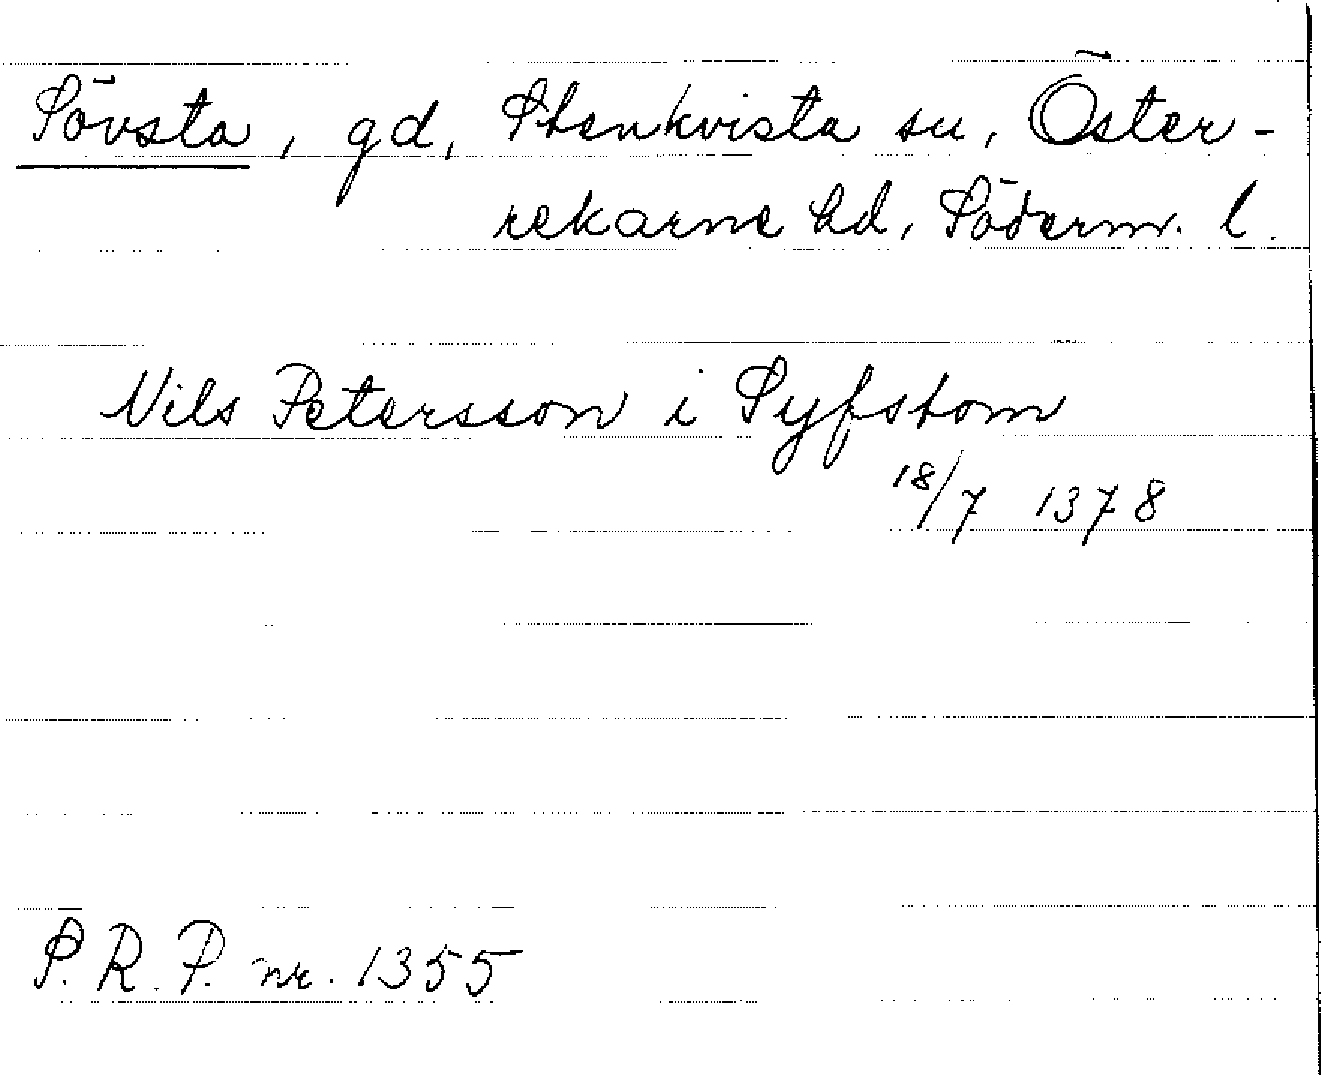 Sövsta, gd, Stenkvista sn, Öster-
rekarne hd, Söderm. l.
Nils Petersson i Syfstom
18/7 1378
S. R. P. nr. 1355